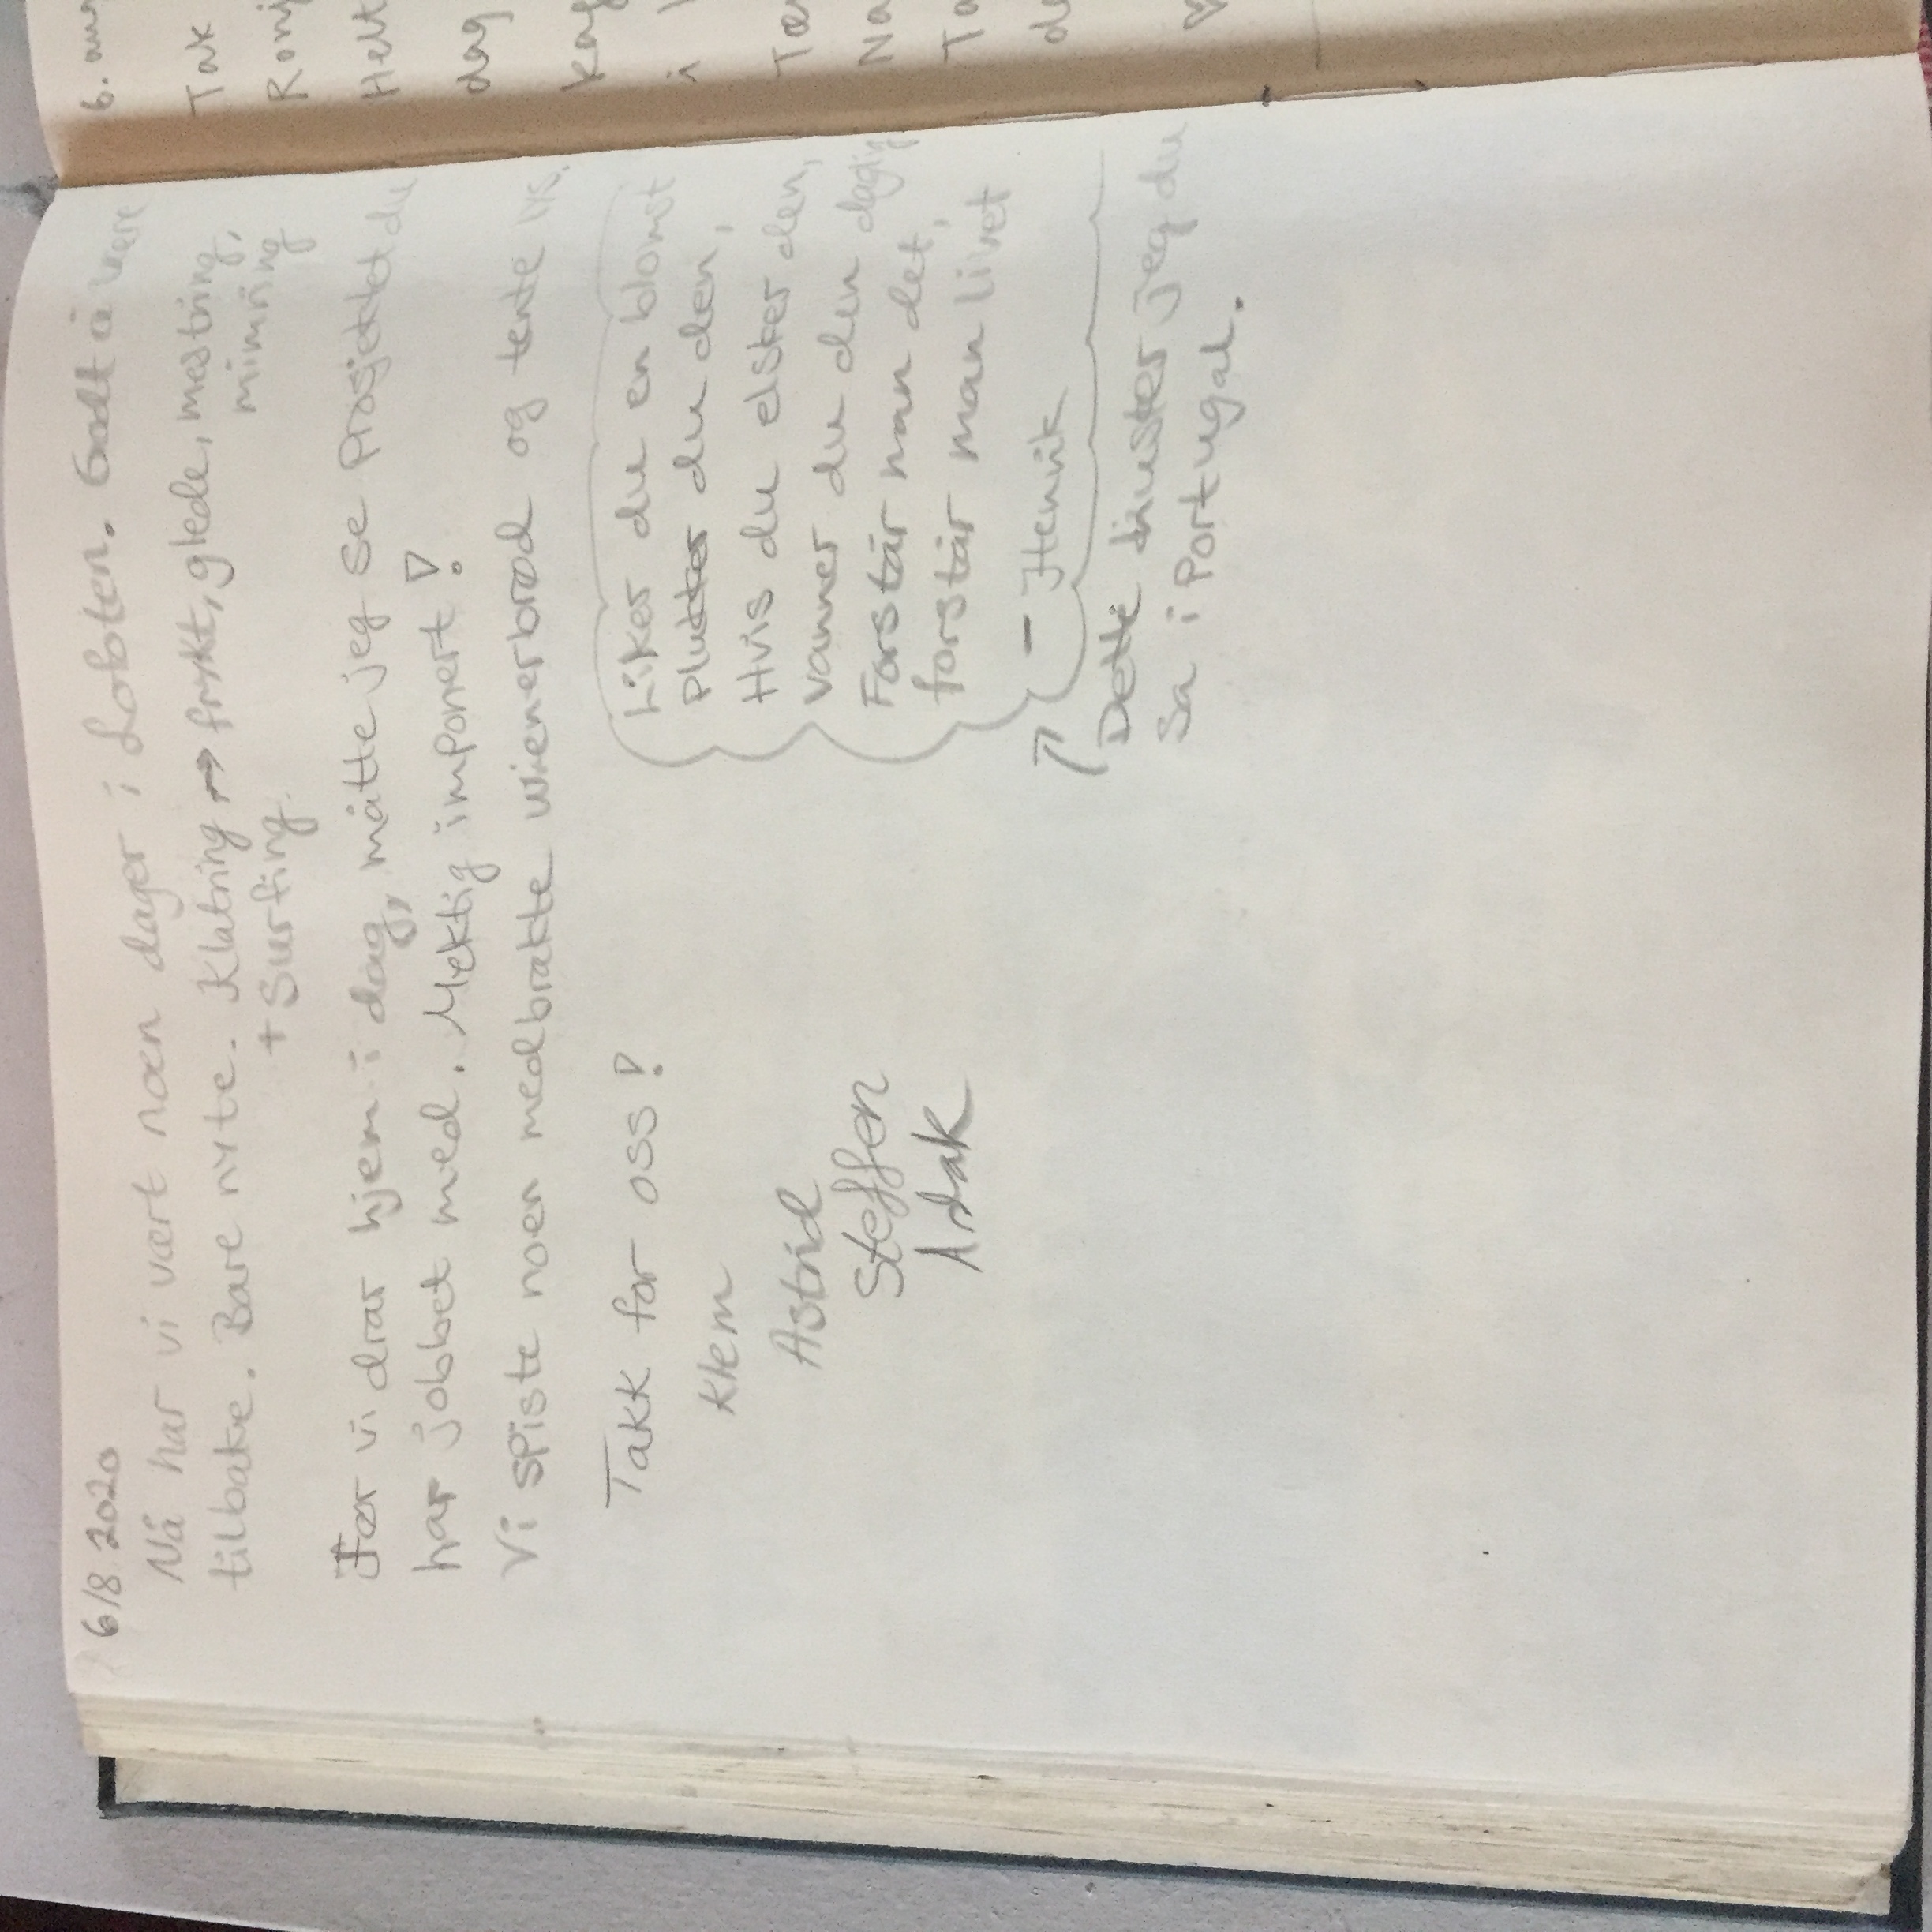 6/8.2020
Nå har vi vært noen dager i Lofoten. Godt å være
tilbake. Bare nyte. Klatring → frykt, glede, mestring,
+ Surfing.
mimring
Før vi drar hjem i dag, måtte jeg se Prosjektet du
har jobbet med. Mektig imponert!
Vi spiste noen medbrakte wienerbrød og tente lys.
Takk for oss!
Klem
Astrid
Steffen
Liker du en blomst
plukker du den,
Hvis du elsker den,
vanner du den daglig
Forstår man det,
forstår man livet
- Henrik
Dette husker jeg du
Sa i Portugal.
6. aug
Tak
Ronj
Helt
dag
Kaf
i
Na
Ta